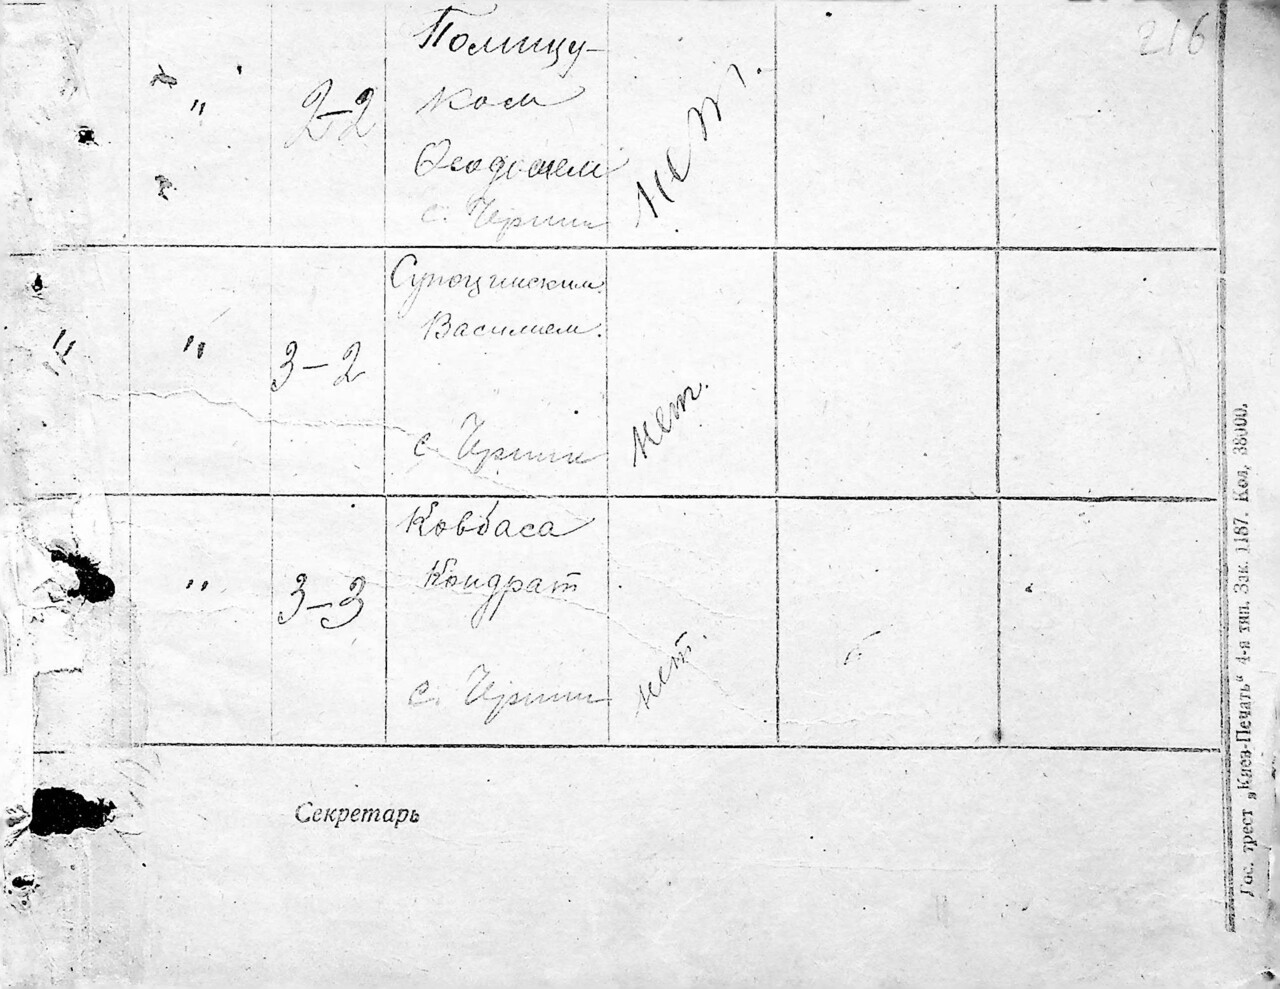 216
" 2-2 Полищу-
ком
Феодосием
с. Черпин
нет.
" " 3-2 Супоцинским
Василием.
с. Черпин
нет.
" 3-3 Ковбаса
Кондрат
с. Черпин
нет.
Секретарь
Гос. трест „Киев-Печать“ 4-я тип. Зак. 1187. Кол. 38000.